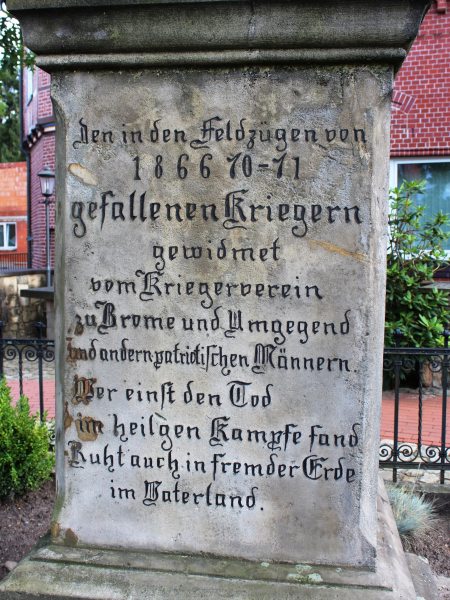 Den in den Feldzügen von
1866 70-71
gefallenen Kriegern
gewidmet
vom Kriegerverein
zu Brome und Umgegend
und andern patriotischen Männern.
Wer einst den Tod
im heilgen Kampfe fand
Ruht auch in fremder Erde
im Vaterland.